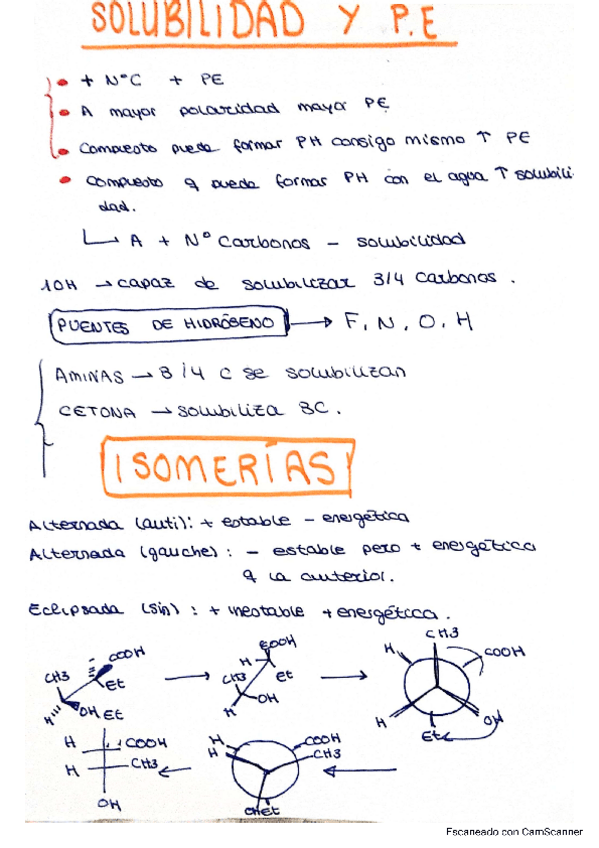 SOLUBILIDAD Y P.E
+ NºC + PE
A mayor polaridad mayor PE
Compuesto puede formar PH consigo mismo ↑ PE
Compuesto q puede formar PH con el agua ↑ solubili
dad.
A + Nº Carbonos - solubilidad
1OH → capaz de solubilizar 3/4 Carbonos.
PUENTES DE HIDRÓGENO → F, N, O, H
AMINAS → 3/4 C se solubilizan
CETONA → solubiliza 3C.
ISOMERÍAS
Alternada (anti): + estable - energética
Alternada (gauche): - estable pero + energética
q la anterior.
Eclipsada (sin): + inestable + energética.
COOH
CH3
Et
H
OH
Et
COOH
H
CH3
Et
OH
H
CH3
H
COOH
H
OH
Et
H
COOH
H
CH3
OH
H
H
COOH
CH3
OHEt
Escaneado con CamScanner